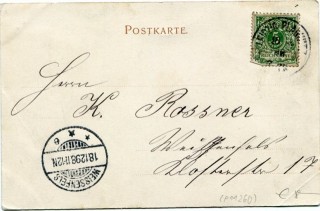 POSTKARTE.
5
Herrn
K. Rossner
Weißenfels
Klosterstr. 17
WEISSENFELS
18.12.98.11-12N.
* *